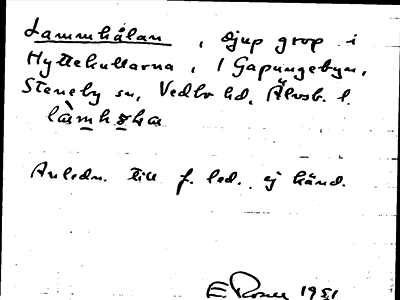 Lammhålan, djup grop i
Hyttekullarna, i Gapungebyn,
Steneby sn, Vedbo hd, Älvsb. l.
Anledn. till f. led. ej känd.
E Rosell 1951